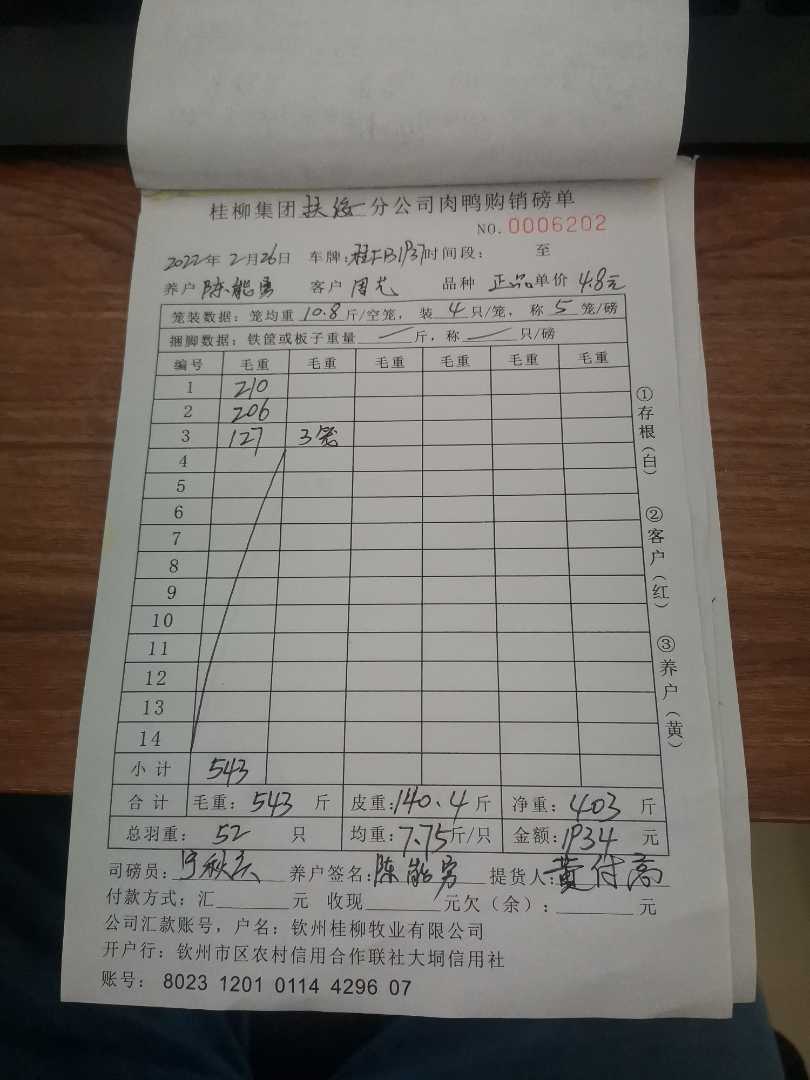 桂柳集团扶绥分公司肉鸭购销磅单
NO. 0006202
2022年2月26日 车牌:桂FB1937时间段: 至
养户 陈能勇 客户 周光 品种 正品 单价 4.8元
笼装数据:笼均重 10.8 斤/空笼,装 4 只/笼,称 5 笼/磅
捆脚数据:铁筐或板子重量 / 斤,称 / 只/磅
编号 毛重 毛重 毛重 毛重 毛重 毛重
1 210
2 206
3 127 3笼
4
5
6
7
8
9
10
11
12
13
14
小计 543
合计 毛重:543 斤 皮重:140.4 斤 净重:403 斤
总羽重:52 只 均重:7.75斤/只 金额:1934 元
司磅员: 养户签名:陈能勇 提货人:黄付高
付款方式:汇 元 收现 元欠(余): 元
公司汇款账号,户名:钦州桂柳牧业有限公司
开户行:钦州市区农村信用合作联社大垌信用社
账号: 8023 1201 0114 4296 07
①存根(白)
②客户(红)
③养户(黄)